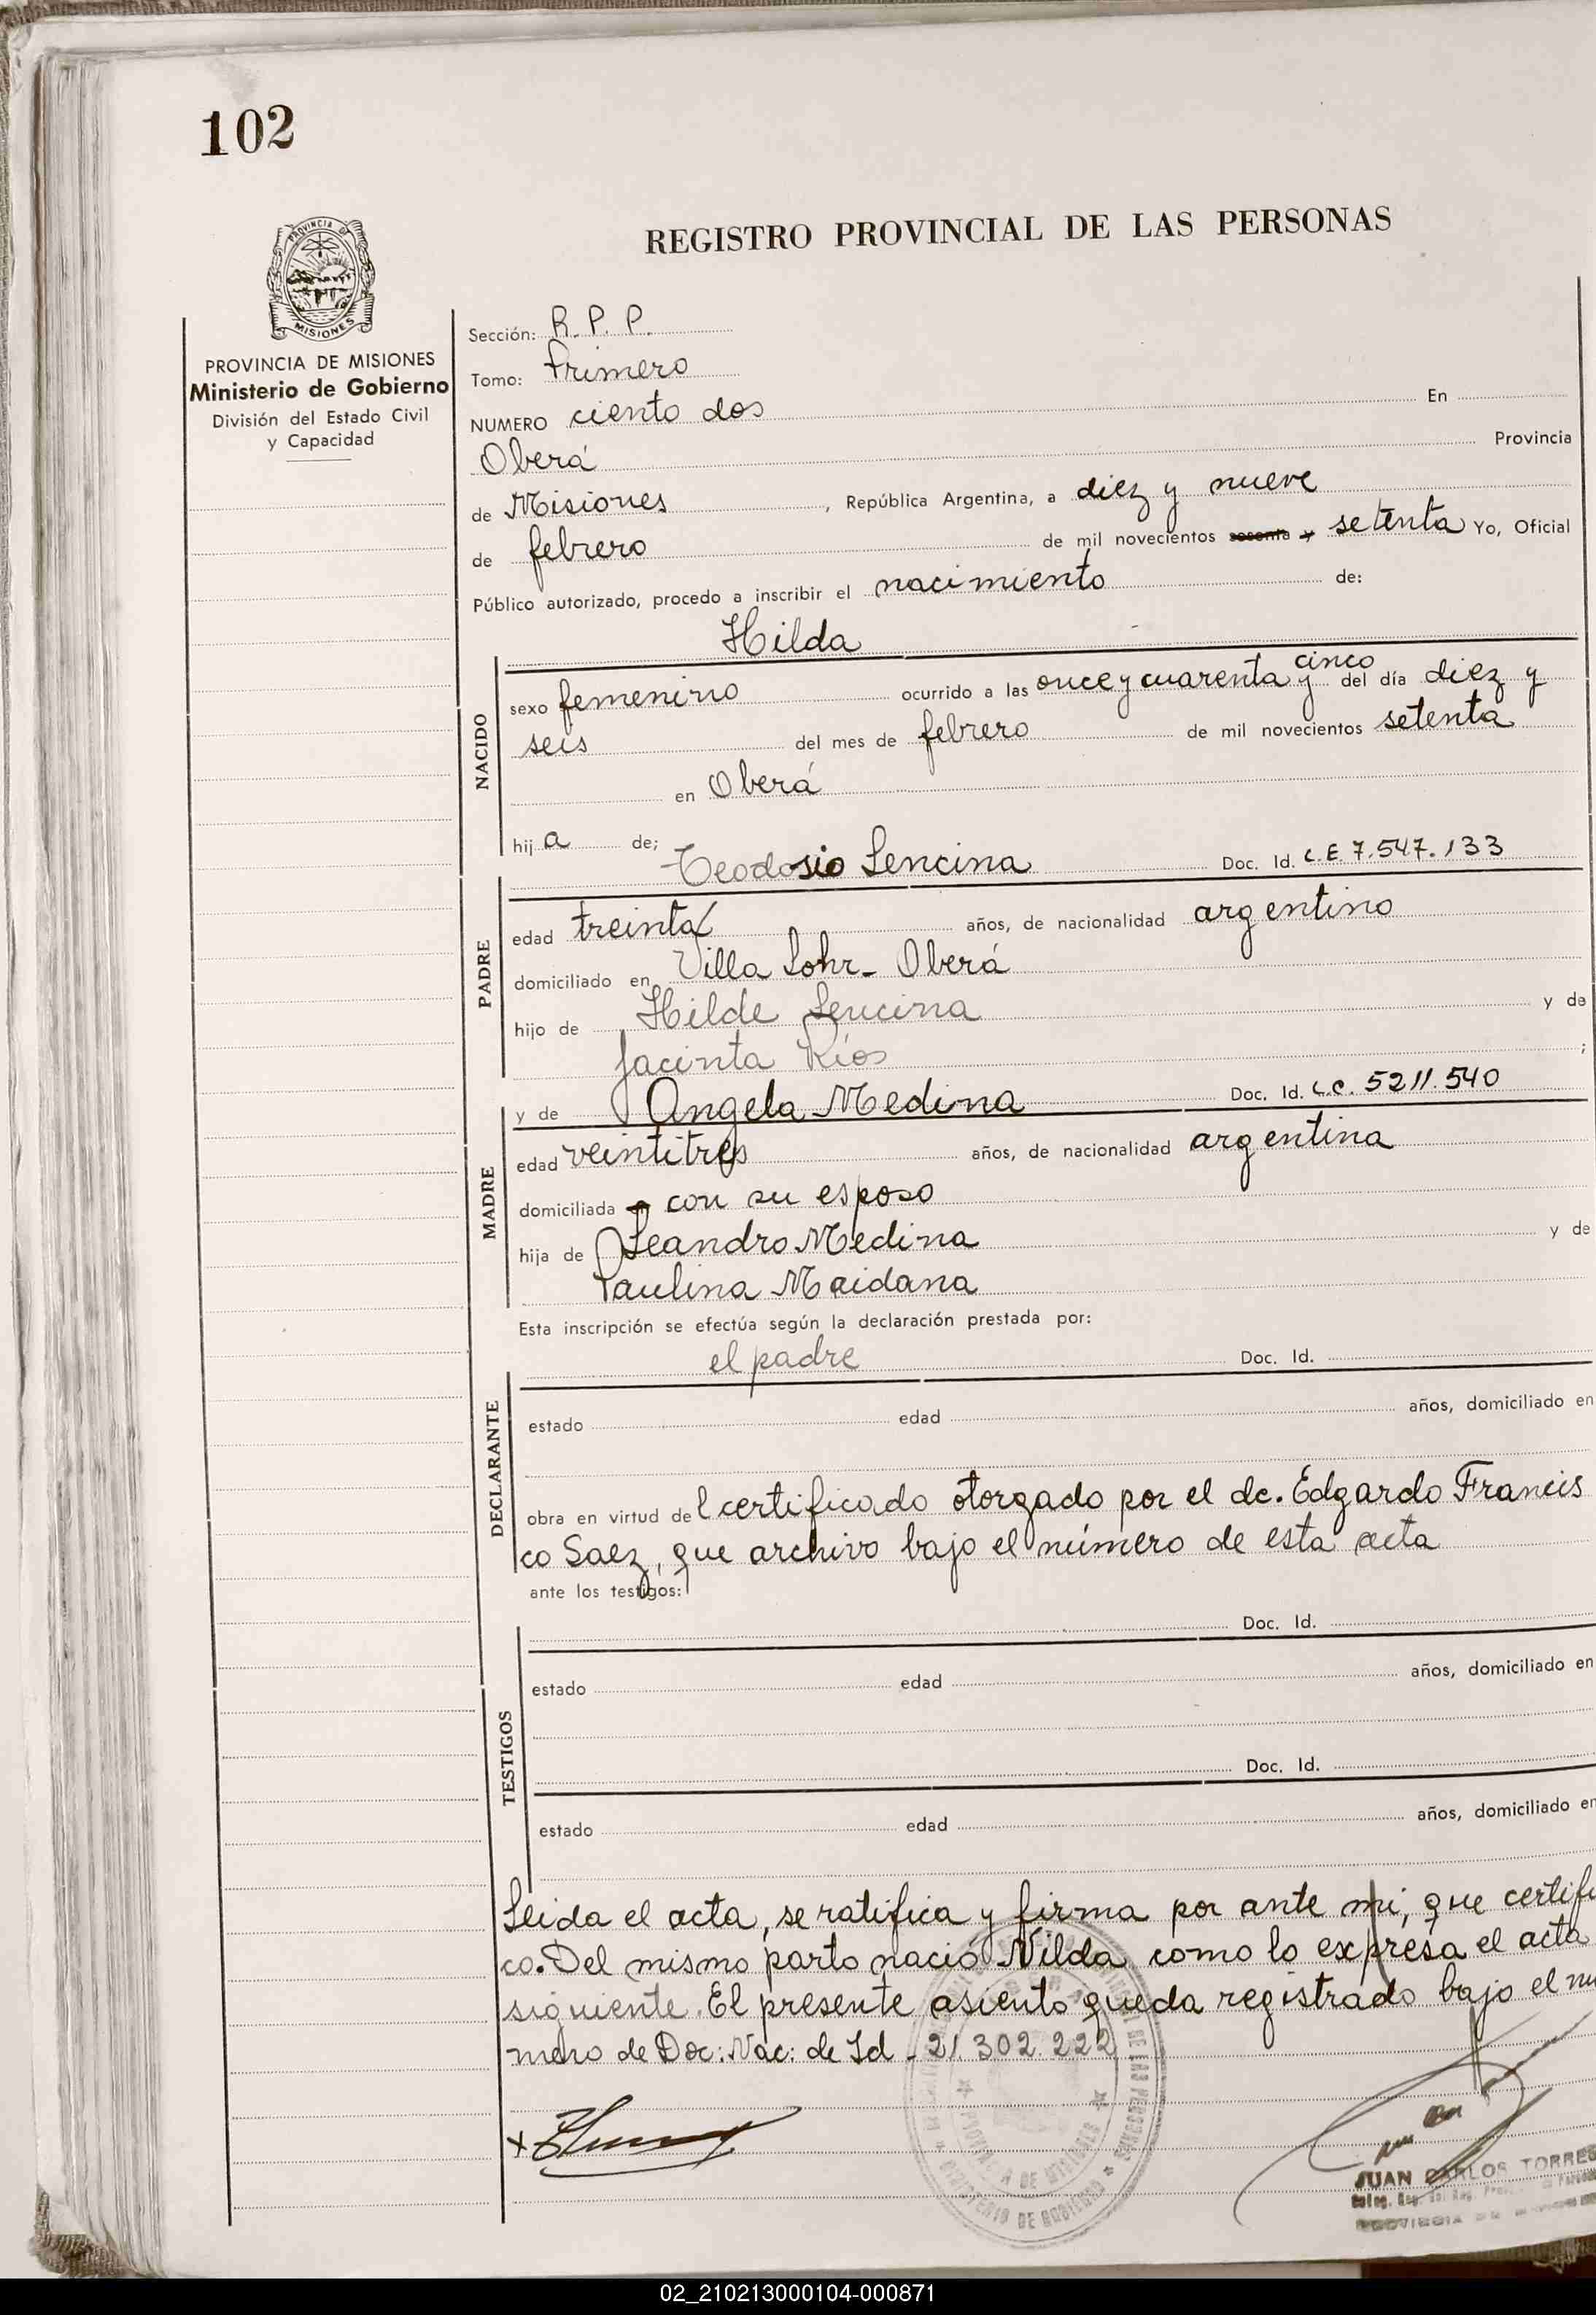 102
REGISTRO PROVINCIAL DE LAS PERSONAS
PROVINCIA DE MISIONES
MISIONES
PROVINCIA DE MISIONES
Ministerio de Gobierno
División del Estado Civil
y Capacidad
Sección: R. P. P.
Tomo: Primero
NUMERO ciento dos En
Oberá Provincia
de Misiones, República Argentina, a diez y nueve
de febrero de mil novecientos sesenta y setenta Yo, Oficial
Público autorizado, procedo a inscribir el nacimiento de:
Hilda
NACIDO
cinco
sexo femenino ocurrido a las once y cuarenta y del día diez y
seis del mes de febrero de mil novecientos setenta
en Oberá
hija de;
Teodosio Lencina Doc. Id. C.E. 7.547.133
PADRE
edad treinta años, de nacionalidad argentino
domiciliado en Villa Lohr - Oberá
hijo de Hilde Lencina y de
Jacinta Ríos ;
y de Angela Medina Doc. Id. L.C. 5211.540
MADRE
edad veintitres años, de nacionalidad argentina
domiciliada con su esposo
hija de Leandro Medina y de
Paulina Maidana
Esta inscripción se efectúa según la declaración prestada por:
el padre Doc. Id.
DECLARANTE
estado edad años, domiciliado en
obra en virtud del certificado otorgado por el dr. Edgardo Francis
co Saez, que archivo bajo el número de esta acta
ante los testigos:
Doc. Id.
TESTIGOS
estado edad años, domiciliado en
Doc. Id.
estado edad años, domiciliado en
Leida el acta, se ratifica y firma por ante mi, que certifi
co. Del mismo parto nació Nilda como lo expresa el acta
siguiente. El presente asiento queda registrado bajo el nu
mero de Doc: Nac: de Id - 21.302.222
PROVINCIA DE MISIONES
MINISTERIO DE GOBIERNO
JUAN CARLOS TORRES
02_210213000104-000871